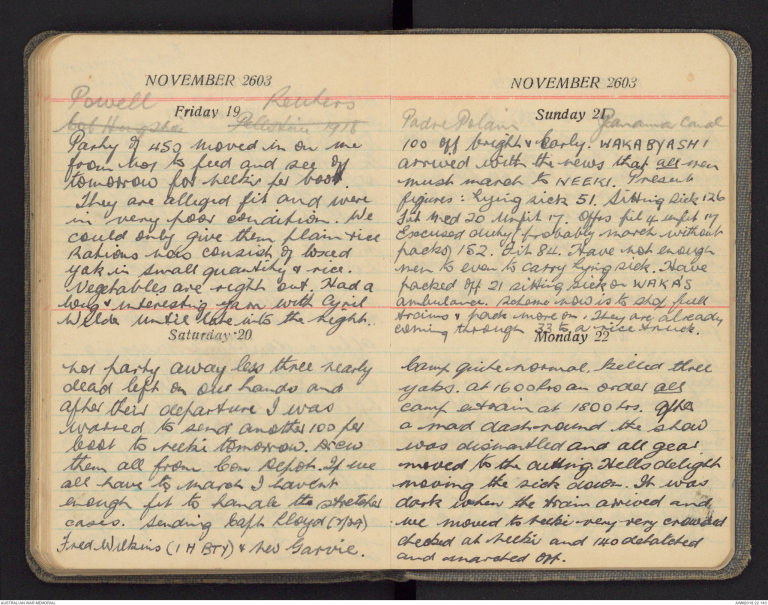 NOVEMBER 2603
Powell Reuters
Friday 19
Palestine 1918
Party of 450 moved in on me
from Nos to feed and see off
tomorrow for Neekie per boot.
They are alleged fit and were
in very poor condition. We
could only give them plain rice
Rations now consist of boxed
yak in small quantity & rice.
Vegetables are right out. Had a
long & interesting yarn with Cyril
Wilde until late into the night.
Saturday 20
party away less three nearly
dead left on our hands and
after their departure I was
warned to send another 100 per
boot to Neekie tomorrow. Drew
them all from Con Depot. If we
all have to march I havent
enough fit to handle the stretcher
cases. Sending Capt Lloyd
Fred Wilkins & Garvie.
NOVEMBER 2603
Sunday 21
Padre Panama Canal
100 off bright & early. WAKABYASHI
arrived with the news that all men
must march to NEEKI. Present
figures: Lying sick 51. Sitting Sick 126
20 Unfit 17. Offrs fit 4 unfit 17
Excused duty (probably march without
packs) 152. Fit 84. Have not enough
men to even to carry lying sick. Have
packed off 21 sitting sick on WAKA'S
ambulance. Scheme now is to stop full
trains & pack more on. They are already
coming through 33 to a rice truck.
Monday 22
Camp quite normal. Killed three
yaks. at 1600 hrs an order all
camp entrain at 1800 hrs. After
a mad dash round the show
was dismantled and all gear
moved to the cutting. Hells delight
moving the sick down. It was
dark when the train arrived and
we moved to Neekie very very crowded
checked at Neekie and 140 detatched
and marched off.
AUSTRALIAN WAR MEMORIAL